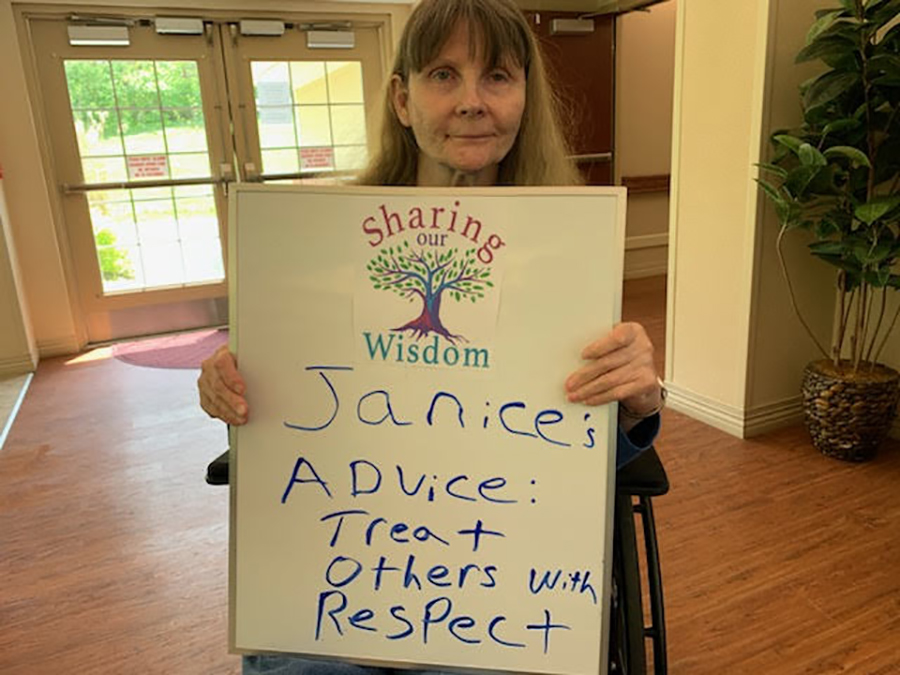 Sharing
our
Wisdom
Janice's
ADvice:
Treat
Others with
Respect